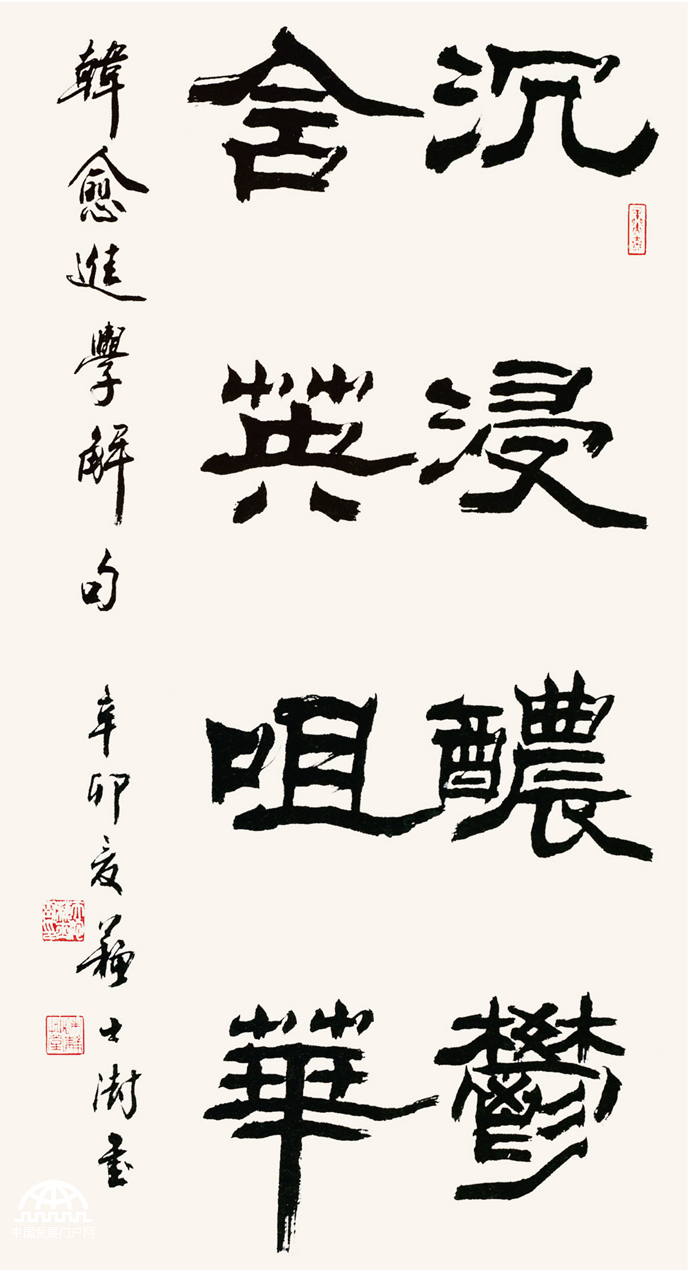 沉浸醲鬱
含英咀華
韓愈進學解句 辛卯夏蘇士澍書
中国发展门户网